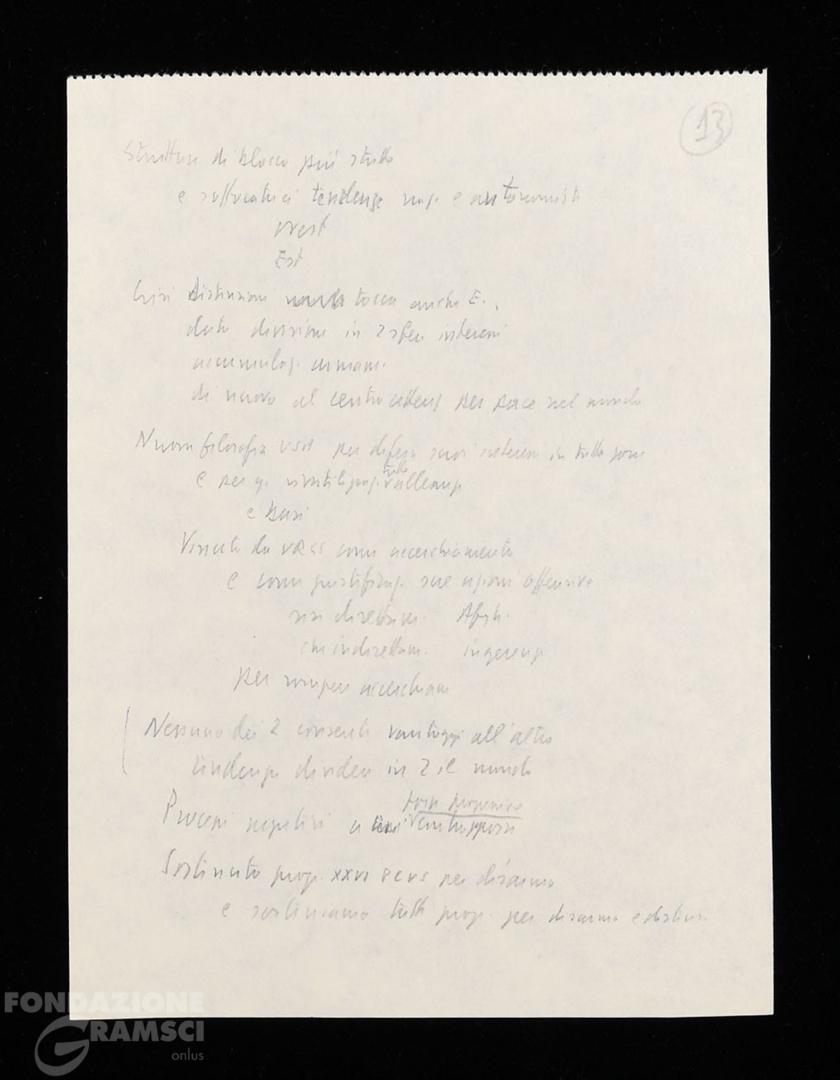 13
Strutture di blocco più strette
e soffocatrici tendenze naz. e autonomist.
Ovest
Est
Crisi distensione tocca anche E.,
data divisione in 2 sfere interessi
accumulaz. armam.
di nuovo al centro per pace nel mondo
Nuova filosofia USA per difesa suoi interessi in tutto
e per q.
e basi
Vissuto da URSS come accerchiamento
e come giustificaz. sue azioni offensive
sia direttam. Afgh.
che indirettam. ingerenz
per rompere accerchiam
Nessuno dei 2 consente vantaggi all'altro
tendenza dividere in 2 il mondo
Processi negativi a cui contrapporsi
forze progressive
Sostenuto prop. XXVI PCUS per disarmo
e sosteniamo tutte prop. per disarmo e distens.
FONDAZIONE
GRAMSCI
onlus